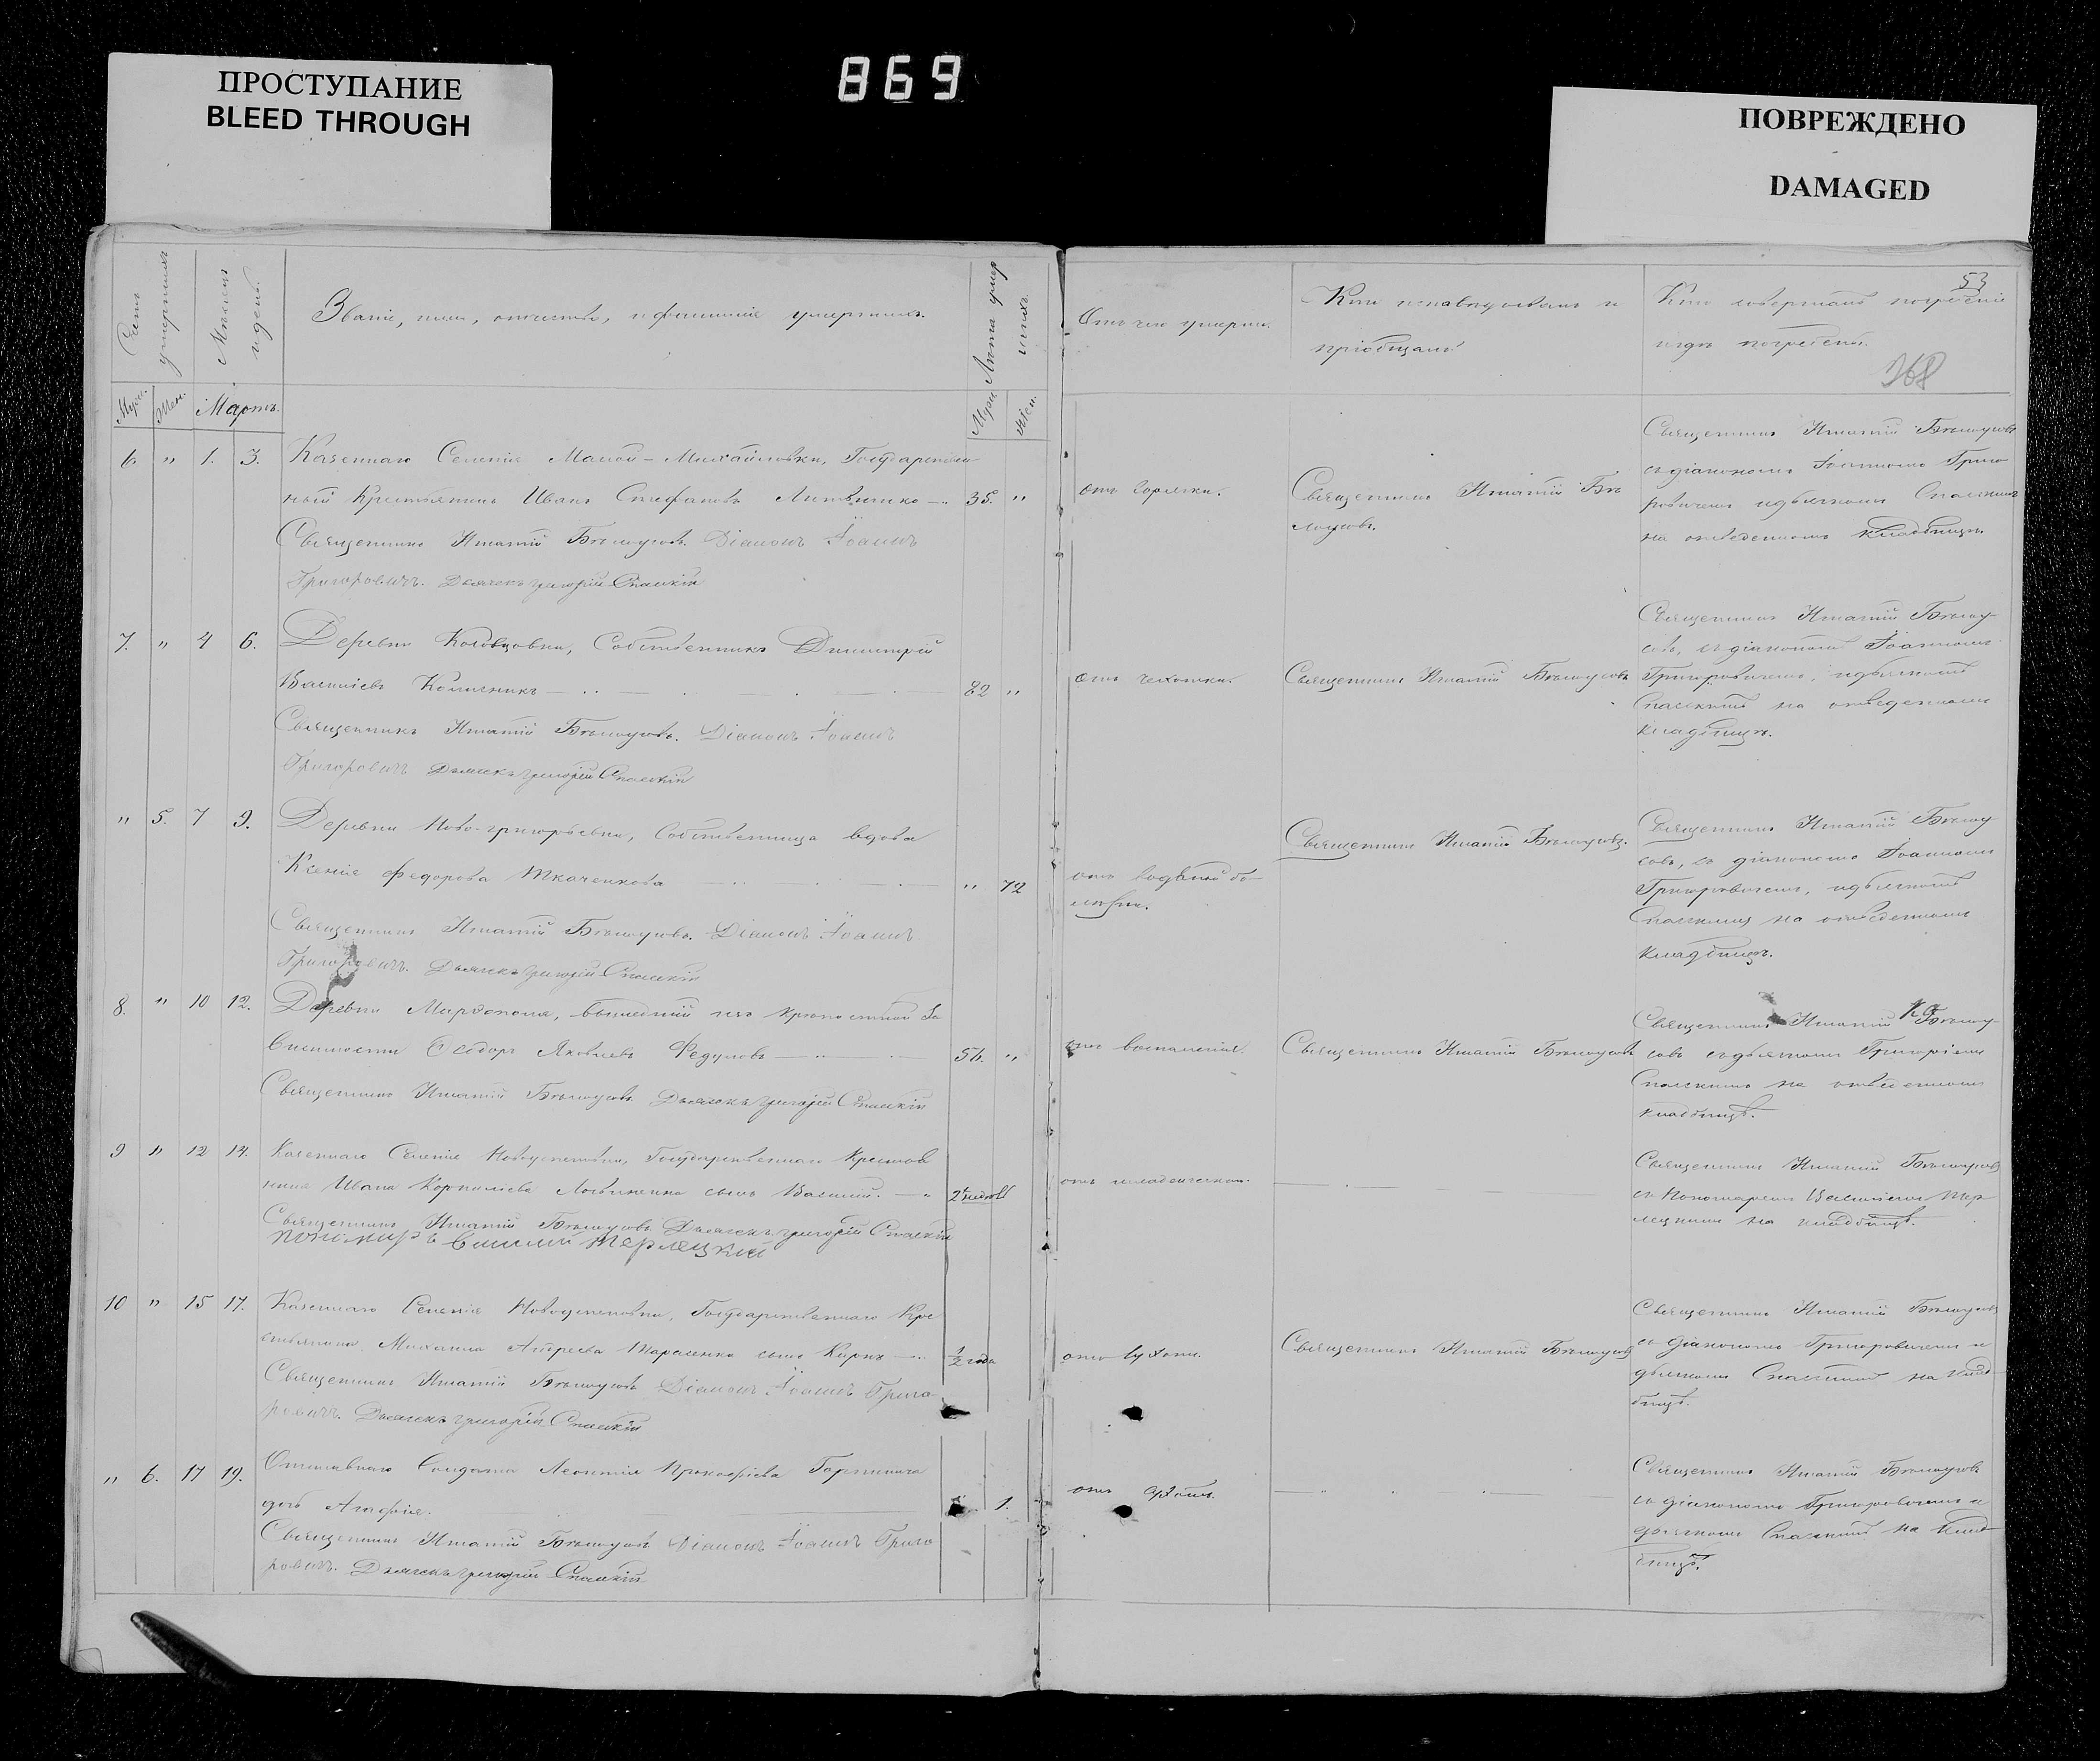 ПРОСТУПАНИЕ
BLEED THROUGH
869
ПОВРЕЖДЕНО
DAMAGED
53
268
Счетъ умершихъ
Мѣсяцъ и день.
Званіе, имя, отчество, и фамилія умершихъ.
Лѣта умершихъ.
Отъ чего умерли.
Кто исповѣдывалъ и
пріобщалъ
Кто совершалъ погребеніе
и гдѣ погребены.
Муж. Жен. Мартъ.
Муж. Жен.
6. " 1. 3. Казеннаго Селенія Малой-Михайловки, Государствен
ный Крестьянинъ Иванъ Стефановъ 35. "
Священникъ Игнатій Бѣлоусовъ. Діаконъ Іоаннъ
Григоровичъ. Дьячекъ Григорій Спаскій
отъ горячки.
Священникъ Игнатій Бѣ
лоусовъ.
Священникъ Игнатій Бѣлоусовъ
съ діакономъ Іоанномъ Григо
ровичемъ и дьячкомъ Спаскимъ
на отведенномъ кладбищѣ.
7. " 4 6. Деревни Собственникъ Димитрій
Василіевъ 82 "
Священникъ Игнатій Бѣлоусовъ. Діаконъ Іоаннъ
Григоровичъ Дьячекъ Григорій Спаскій
отъ чехотки.
Священникъ Игнатій Бѣлоусовъ
Священникъ Игнатій Бѣлоу-
совъ, съ діакономъ Іоанномъ
Григоровичемъ, и дьячкомъ
Спаскимъ на отведенномъ
кладбищѣ.
" 5. 7 9. Деревни Ново-григорьевки, Собственница вдова
Ксенія Федорова Ткаченкова " 72
Священникъ Игнатій Бѣлоусовъ. Діаконъ Іоаннъ
Григоровичъ. Дьячекъ Григорій Спаскій
отъ водяной бо-
лѣзни.
Священникъ Игнатій Бѣлоусовъ.
Священникъ Игнатій Бѣлоу-
совъ, съ діакономъ Іоанномъ
Григоровичемъ, и дьячкомъ
Спаскимъ на отведенномъ
кладбищѣ.
8. " 10 12. Деревни вышедшій изъ крѣпостной за
висимости Ѳеодоръ Яковлевъ Федуловъ 56. "
Священникъ Игнатій Бѣлоусовъ Дьячекъ Григорій Спаскій
отъ воспаленія.
Священникъ Игнатій Бѣлоусовъ
Священникъ Игнатій Бѣлоу-
совъ съ дьячкомъ Григоріемъ
Спаскимъ на отведенномъ
кладбищѣ.
9 " 12 14. Казеннаго Селенія Новоуспеновки, Государственнаго Крестья
нина Ивана Корниліева сынъ Василій.
Священникъ Игнатій Бѣлоусовъ Дьячекъ Григорій Спаскій
пономаръ Василий Терлецкий
отъ младенческой.
Священникъ Игнатій Бѣлоусовъ
съ Пономаремъ Василіемъ Тер
лецкимъ на кладбищѣ.
10 " 15 17. Казеннаго Селенія Новоуспеновки, Государственнаго Кре
стьянина Михаила Андреева Тарасенка сынъ 1/2 года
Священникъ Игнатій Бѣлоусовъ Діаконъ Іоаннъ Григо
ровичъ. Дьячекъ Григорій Спаскій
Священникъ Игнатій Бѣлоусовъ
Священникъ Игнатій Бѣлоусовъ
съ діакономъ Григоровичемъ и
дьячкомъ Спаскимъ на клад-
бищѣ.
" 6. 17 19. Отставнаго Солдата Леонтія Прокофіева
дочь Агафія. 1.
Священникъ Игнатій Бѣлоусовъ Діаконъ Іоаннъ Григо
ровичъ. Дьячекъ Григорій Спаскій
Священникъ Игнатій Бѣлоусовъ
съ діакономъ Григоровичемъ и
дьячкомъ Спаскимъ на клад
бищѣ.